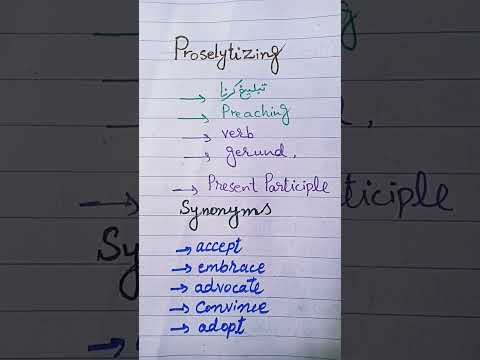 Proselytizing
→ تبلیغ کرنا
→ Preaching
→ verb
→ gerund,
→ Present Participle
Synonyms
→ accept
→ embrace
→ advocate
→ convince
→ adopt